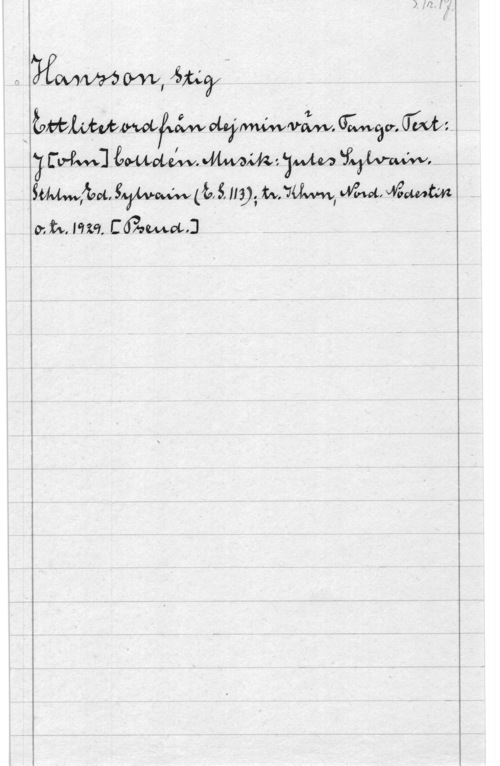 Hansson, Stig
Ett litet ord från dej min vän. Tango. Text:
J[ohn] Cottdén. Musik: Jules Sylvain.
Sthlm, Ed. Sylvain (E.S. 113); tr. Khvn, Nord. Nodestik
o. tr. 1929. [Pseud.]